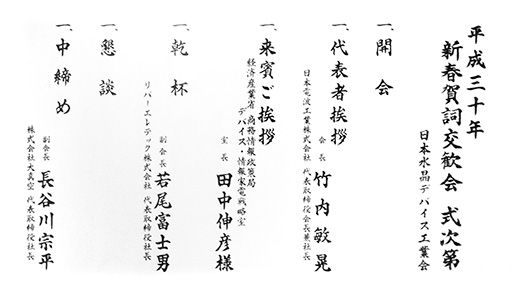 平成三十年
新春賀詞交歓会 式次第
日本水晶デバイス工業会
一、開会
一、代表者挨拶
日本電波工業株式会社 代表取締役会長兼社長
会長 竹内敏晃
一、来賓ご挨拶
経済産業省 商務情報政策局
デバイス・情報家電戦略室
室長 田中伸彦様
一、乾杯
リバーエレテック株式会社 代表取締役社長
副会長 若尾富士男
一、懇談
一、中締め
副会長 長谷川宗平
株式会社大真空 代表取締役社長